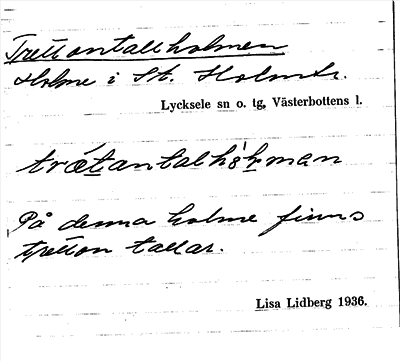 Trettontallholmen
Holme i St. Holmtr.
Lycksele sn o. tg, Västerbottens l.
På denna holme finns
tretton tallar.
Lisa Lidberg 1936.